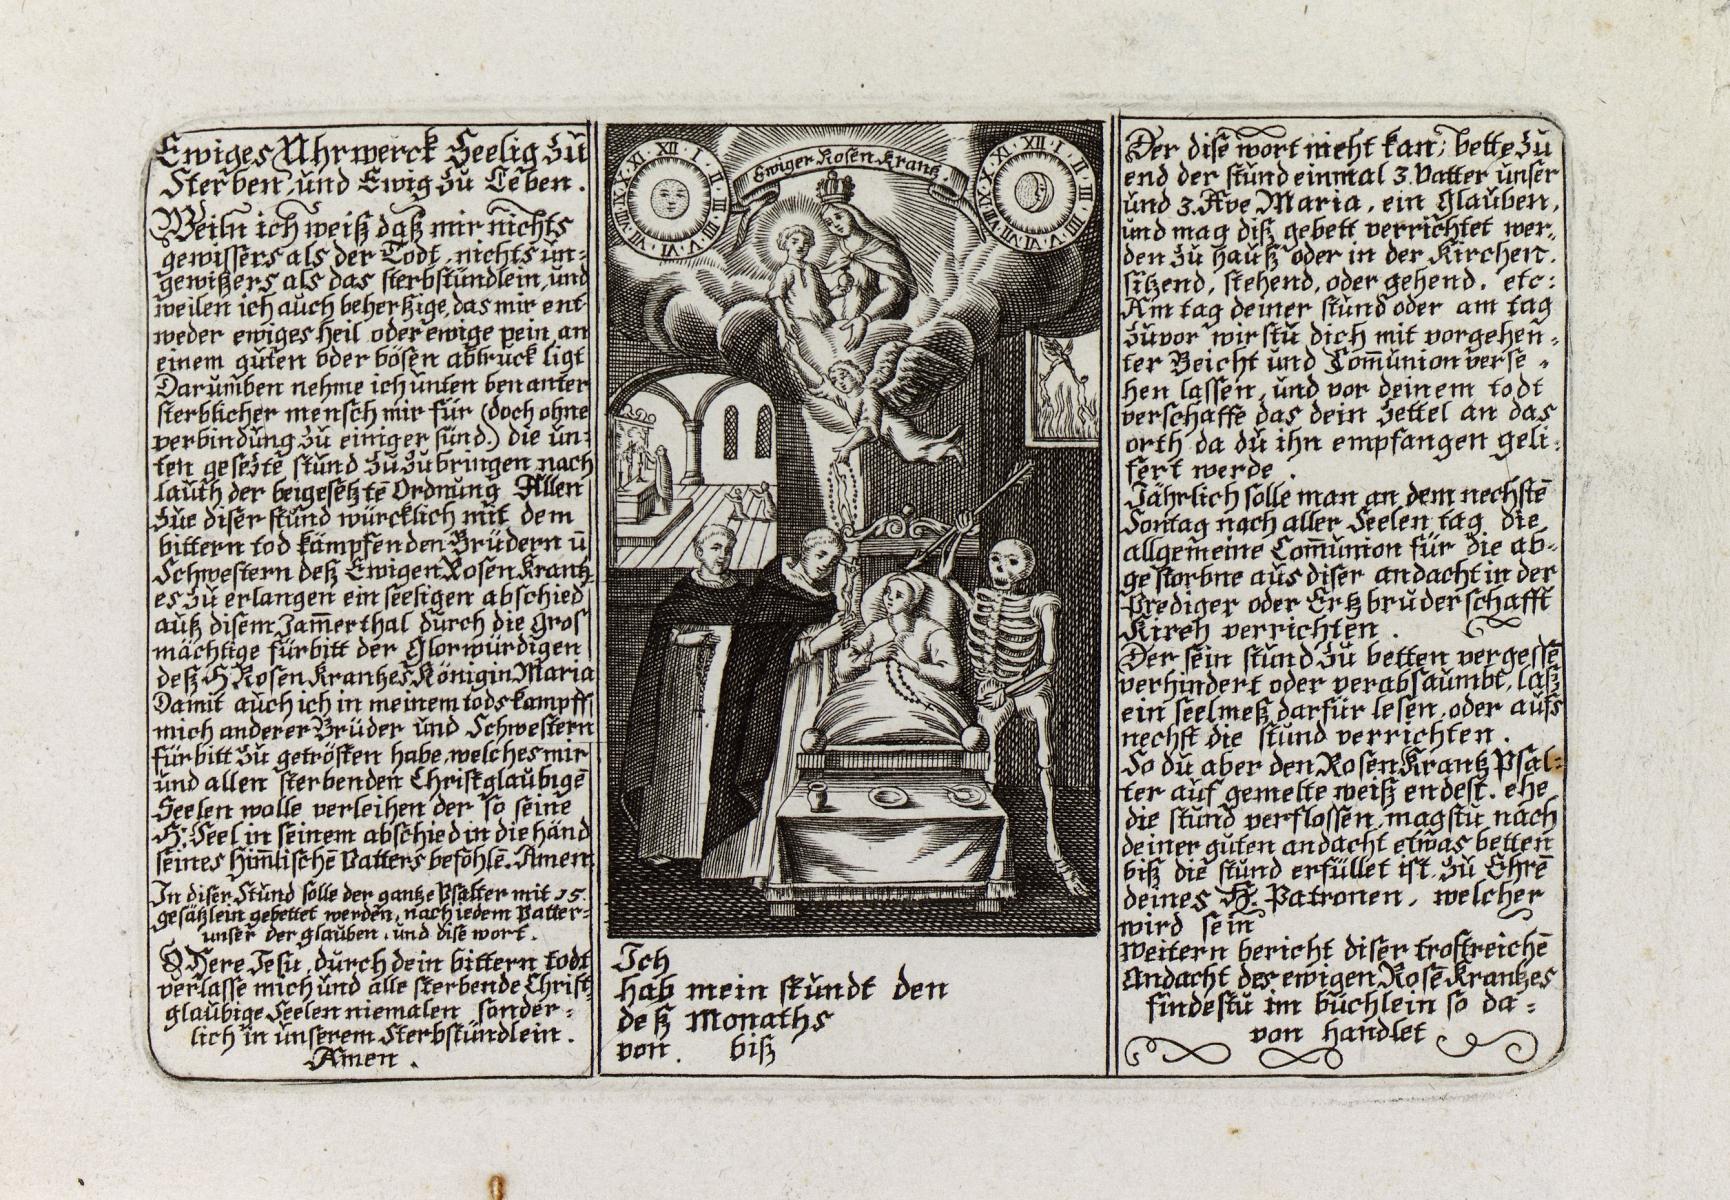 Ewiges Uhrwerck Seelig Zu
Sterben, und Ewig Zu Leben.
Weiln ich weiß daß mir nichts
gewissers als der Todt, nichts un-
gewißers als das sterbstündlein, und
weilen ich auch behertzige, das mir ent-
weder ewiges heil, oder ewige pein an
einem guten oder bösen abtruck ligt
Darumben nehme ich unten benanter
sterblicher mensch mir für (doch ohne
verbindung zu einiger sünd.) die un-
ten gesezte stund zu zubringen nach
lauth der beigesetztē Ordnung Allen
zue diser stund würcklich mit dem
bittern tod kämpfenden Brüdern ū
Schwestern deß Ewigen Rosen Krantz-
es zu erlangen ein seeligen abschied
auß disem Jam̄erthal durch die gros
mächtige fürbitt der Glorwürdigen
deß H Rosen Krantzes Königin Maria
Damit auch ich in meinem tods kampff
mich anderer Brüder und Schwestern
fürbitt zu getrösten habe, welches mir
und allen sterbenden Christglaubigē
Seelen wolle verleihen der so seine
H: Seel in seinem abschied in die händ
seines him̄lischē Vatters befohlē. Amen
In diser Stund solle der gantze Psalter mit 15.
gesätzlein gebettet werden, nach iedem Vatter-
unser der glauben, und dise wort.
O Here Jesu, durch dein bittern todt
verlasse mich und alle sterbende Christ-
glaubige Seelen niemalen sonder-
lich in unserem Sterbstündlein.
Amen.
XII I II III IIII V VI VII VIII IX X XI
Ewiger Rosen Krantz.
XII I II III IIII V VI VII VIII IX X XI
Ich
hab mein stundt den
deß Monaths
von. biß
Der dise wort nicht kan, bette zu
end der stund einmal 3. Vatter unser
und 3. Ave Maria, ein Glauben,
und mag diß gebett verrichtet wer-
den zu hauß oder in der Kirchen.
sitzend, stehend, oder gehend, etc:
Am tag deiner stund oder am tag
zuvor wirstu dich mit vorgehen-
ter Beicht und Com̄union verse-
hen lassen, und vor deinem todt
verschaffe das dein Zettel an das
orth da du ihn empfangen geli-
fert werde.
Jährlich solle man an dem nechstē
Sontag nach aller Seelen tag die
allgemeine Com̄union für die ab-
gestorbne aus diser andacht in der
Prediger oder Ertzbruderschafft
Kirch verrichten.
Der sein stund zu betten vergessē
verhindert oder verabsaumbt, laß
ein seelmeß darfür lesen, oder aufs
nechst die stund verrichten.
So du aber den Rosen Krantz Psal-
ter auf gemelte weiß endest. ehe
die stund verflossen, magstu nach
deiner guten andacht etwas betten
biß die stund erfüllet ist. zu Ehrē
deines H. Patronen, welcher
wird sein
Weitern bericht diser trostreichē
Andacht des ewigen Rosē Krantzes
findestu im büchlein so da-
von handlet